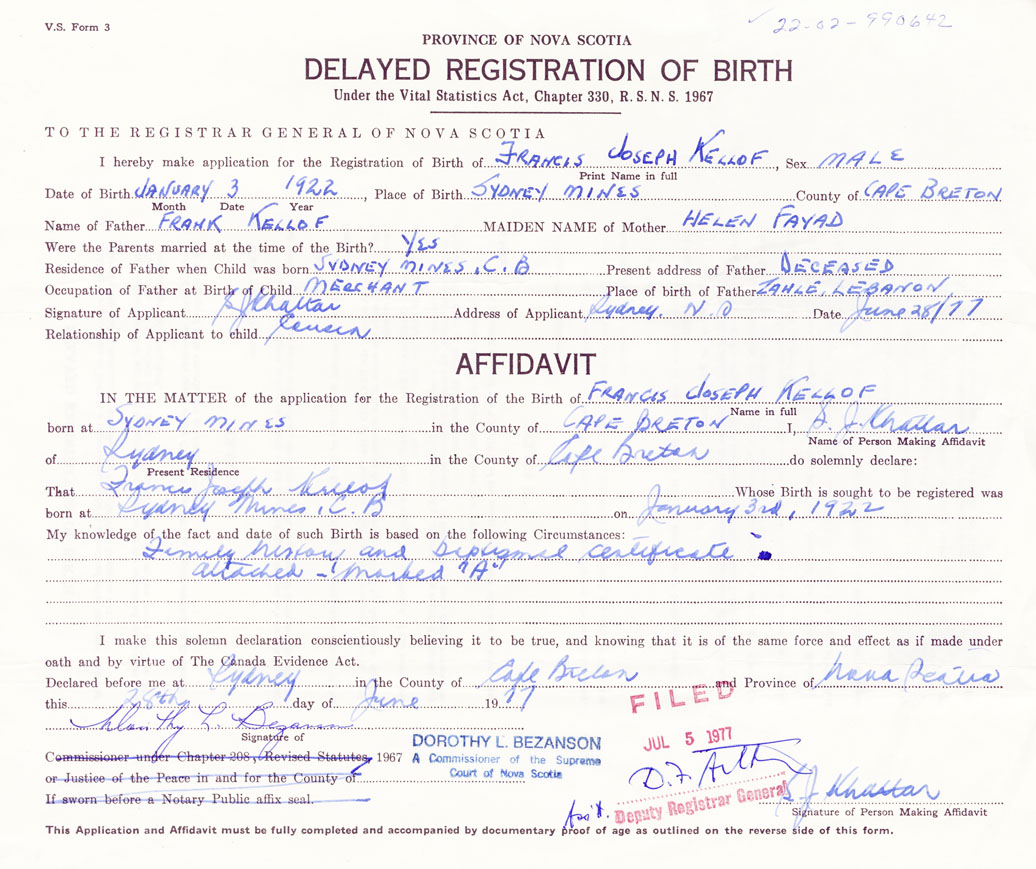 V.S. Form 3
22-02-990642
PROVINCE OF NOVA SCOTIA
DELAYED REGISTRATION OF BIRTH
Under the Vital Statistics Act, Chapter 330, R. S. N. S. 1967
TO THE REGISTRAR GENERAL OF NOVA SCOTIA
I hereby make application for the Registration of Birth of FRANCIS JOSEPH KELLOF, Sex MALE
Print Name in full
Date of Birth JANUARY 3 1922, Place of Birth SYDNEY MINES County of CAPE BRETON
Month Date Year
Name of Father FRANK KELLOF MAIDEN NAME of Mother HELEN FAYAD
Were the Parents married at the time of the Birth? YES
Residence of Father when Child was born SYDNEY MINES, C.B Present address of Father DECEASED
Occupation of Father at Birth of Child MERCHANT Place of birth of Father ZAHLE, LEBANON
Signature of Applicant Khattar Address of Applicant Sydney, N.S Date June 28/77
Relationship of Applicant to child Cousin
AFFIDAVIT
IN THE MATTER of the application for the Registration of the Birth of FRANCIS JOSEPH KELLOF
Name in full
born at SYDNEY MINES in the County of CAPE BRETON I, S. J. Khattar
Name of Person Making Affidavit
of Sydney in the County of Cape Breton do solemnly declare:
Present Residence
That Francis Joseph Kellof Whose Birth is sought to be registered was
born at Sydney Mines, C.B on January 3rd, 1922
My knowledge of the fact and date of such Birth is based on the following Circumstances:
Family history and baptismal certificate
attached - marked "A"
I make this solemn declaration conscientiously believing it to be true, and knowing that it is of the same force and effect as if made under
oath and by virtue of The Canada Evidence Act.
Declared before me at Sydney in the County of Cape Breton and Province of Nova Scotia
this 28th day of June 1977
FILED
Dorothy L. Bezanson
Signature of
JUL 5 1977
Commissioner under Chapter 208, Revised Statutes, 1967
DOROTHY L. BEZANSON
A Commissioner of the Supreme
Court of Nova Scotia
or Justice of the Peace in and for the County of
If sworn before a Notary Public affix seal.
D.F.
Deputy Registrar General
S J Khattar
Signature of Person Making Affidavit
This Application and Affidavit must be fully completed and accompanied by documentary proof of age as outlined on the reverse side of this form.